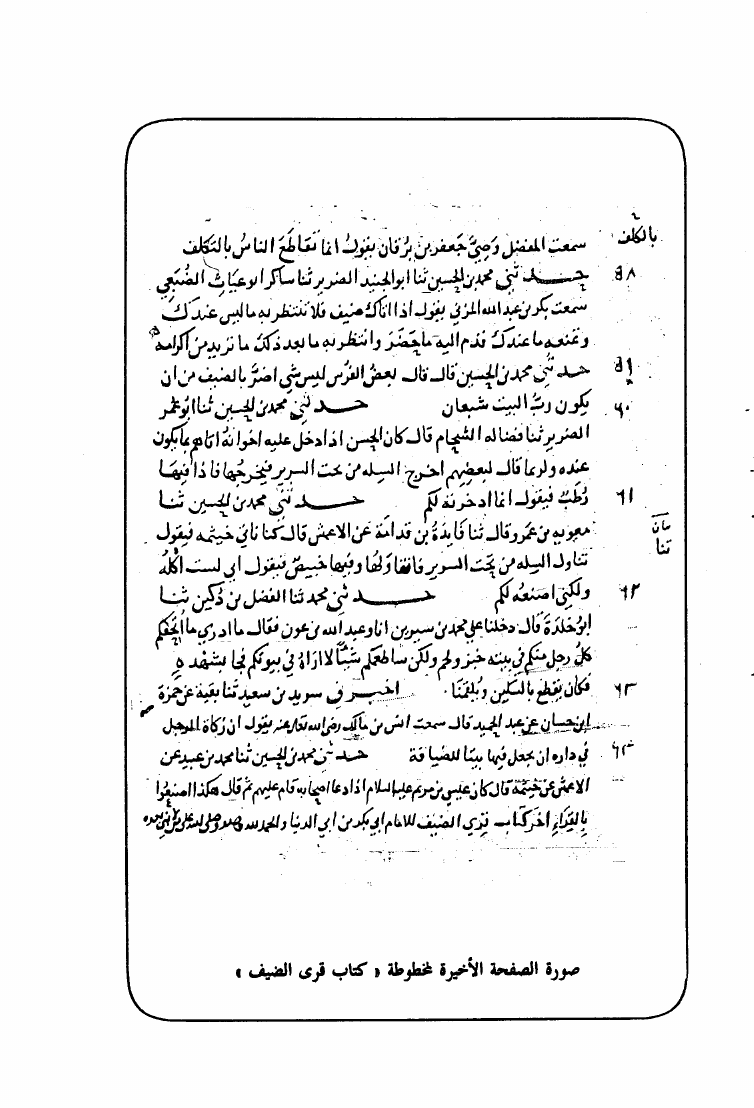 سمعت المفضل وصي جعفر بن برقان يقول انما تقاطع الناس بالتكلف
بالكلف
٥٨ حدثني محمد بن الحسين ثنا ابو الجنيد الضرير ثنا شاكر ابو عياش الضبعي
سمعت بكر بن عبد الله المزني يقول اذا اتاك ضيف فلا تنتظر به ما ليس عندك
وتمنعه ما عندك قدم اليه ما حضر وانتظر به ما بعد ذلك ما تريد من اكرامه
٥٩ حدثني محمد بن الحسين قال قال بعض الفرس ليس شي اضر بالضيف من ان
٦٠ يكون رب البيت شبعان حدثني محمد بن الحسين ثنا ابو عمر
الضرير ثنا فضاله الشحام قال كان الحسن اذا دخل عليه اخوانه اتاهم بما يكون
عنده ولربما قال لبعضهم اخرج السله من تحت السرير فيخرجها فاذا فيها
٦١ رطب فيقول انما ادخرته لكم حدثني محمد بن الحسين ثنا
معويه بن عمرو قال ثنا زايدة بن قدامة عن الاعمش قال كنا ناتي خيثمه فيقول
ثنا
تناول السله من تحت السرير فاتناولها وفيها خبيص فيقول اني لست اكله
٦٢ ولكني اصنعه لكم حدثني محمد ثنا الفضل بن دكين ثنا
ابو خلدة قال دخلنا على محمد بن سيرين انا وعبد الله بن عون فقال ما ادري ما اتحفكم
كل رجل منكم في بيته خبز ولحم ولكن ساطعمكم شيئا لا اراه في بيوتكم فجا بشهده
٦٣ فكان يقطع بالسكين ويلقمنا اخبرني سويد بن سعيد ثنا بقية عن حمزة
ابن حسان عن عبد الحميد قال سمعت انس بن مالك رضي الله تعالى عنه يقول ان زكاة الرجل
٦٤ في داره ان يجعل فيها بيتا للضيافة حدثني محمد بن الحسين ثنا محمد بن عبيد عن
الاعمش عن خيثمة قال كان عيسى بن مريم عليه السلام اذا دعا اصحابه قام عليهم ثم قال هكذا اصنعوا
بالقراء اخر كتاب قري الضيف للامام ابي بكر بن ابي الدنيا والحمد لله وحده
صورة الصفحة الأخيرة لمخطوطة « كتاب قرى الضيف »